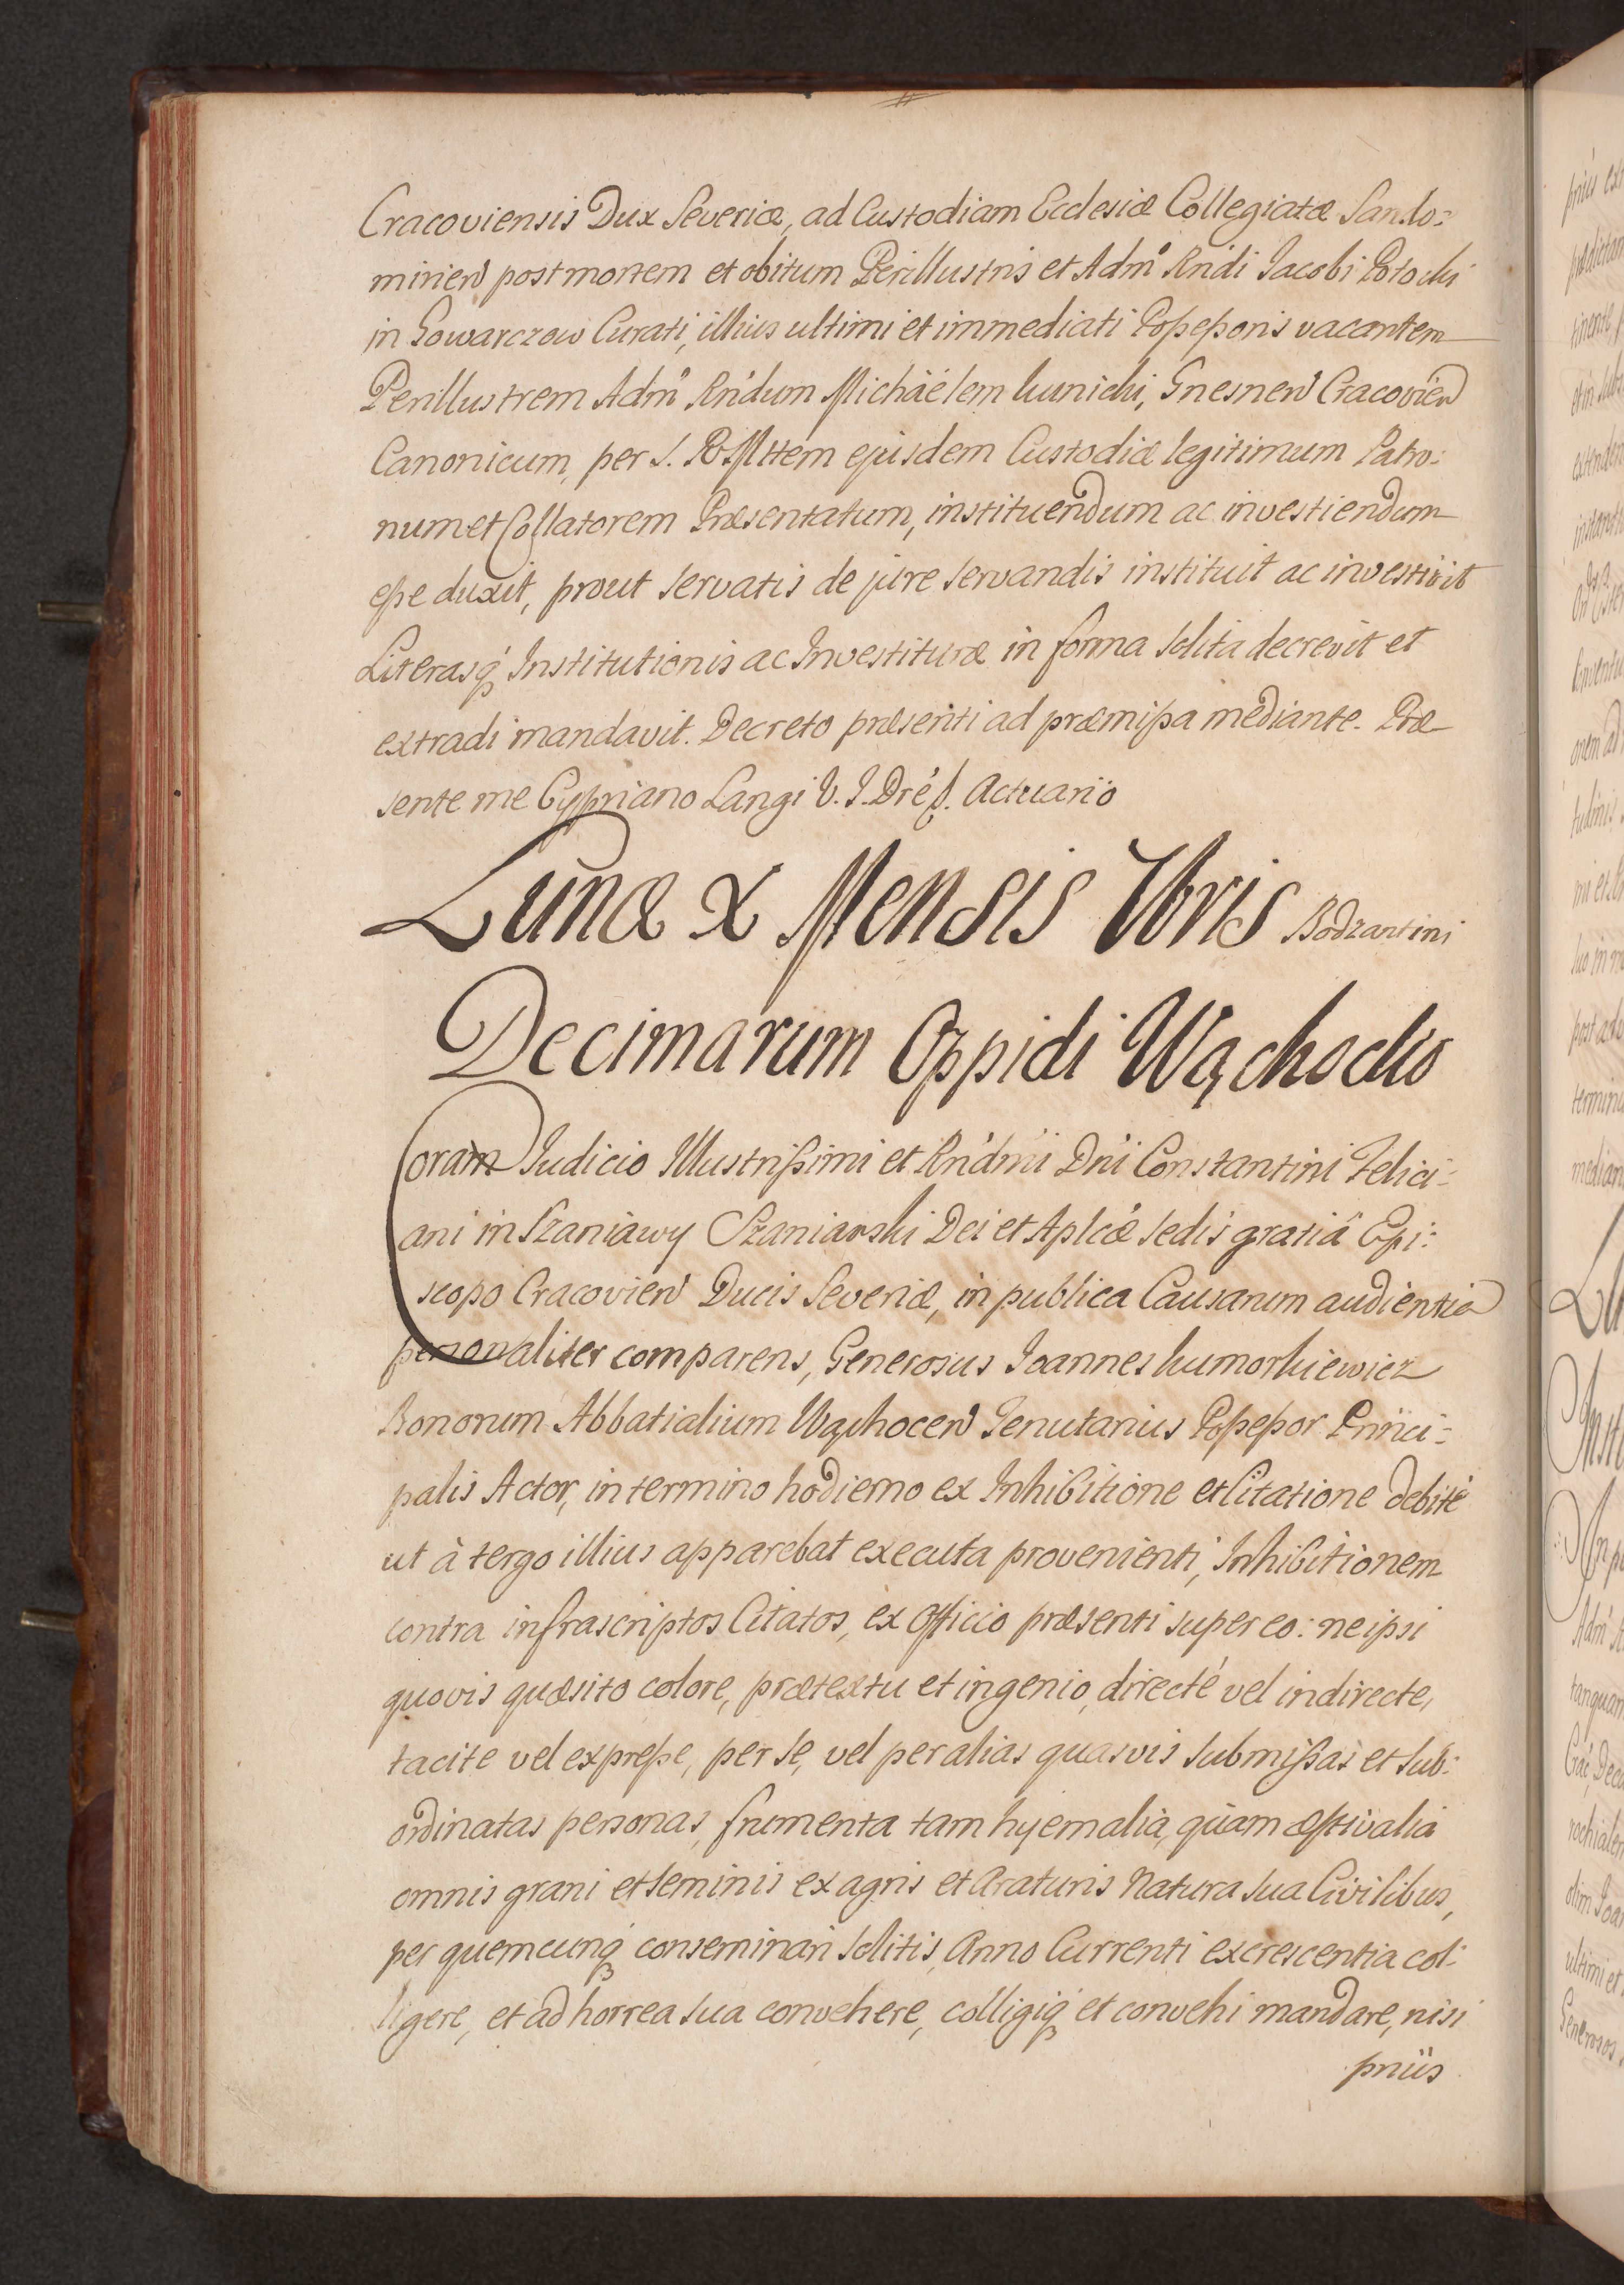 Cracoviensis Dux Severiæ, ad Custodiam Ecclesiæ Collegiatæ Sando:
mirien̄ post mortem et obitum Perillustris et Adm̊ Rndi Jacobi Potocki
in Gowarczow Curati, illius ultimi et immediati Poſseſsoris vacantem
Perillustrem Adm̊ Rńdum Michäélem Kunicki, Gnesnen̄ Cracovien̄
Canonicum, per S. R. Mttem ejusdem Custodiæ legitimum Patro:
num et Collatorem Præsentatum, instituendum ac investiendum
eſse duxit, prout servatis de jure servandis instituit ac investivit
Literasq́ Institutionis ac Investituræ in forma solita decrevit et
extradi mandavit. Decreto præsenti ad præmiſsa mediante. Præ
sente me Cypriano Langi V. J. Dré Actuario
Lunæ X Mensis Vbris Bodzantini
Decimarum Oppidi Wąchocko
Coram Judicio Illustriſsimi et Rńdmi Dńi Constantini Felici:
ani in Szaniawy Szaniawski Dei et Aplicæ Sedis gratiâ Epi:
scopo Cracovien̄ Ducis Severiæ, in publica Causarum audientia
personaliter comparens, Generosus Joannes Kumorkiewicz
Bonorum Abbatialium Wąchocen̄ Tenutarius Poſseſsor Princi:
palis Actor, in termino hodierno ex Inhibitione et Citatione debité
ut à tergo illius apparebat executa provenienti, Inhibitionem
contra infrascriptos Citatos, ex Officio præsenti super eo: ne ipsi
quovis quæsito colore, prætextu et ingenio, directé vel indirecte,
tacite vel expreſse, per se, vel per alias quasvis submiſsas et sub:
ordinatas personas, frumenta tam hyemalia, quàm æstivalia
omnis grani et seminis ex agris et Araturis Natura sua Civilibus,
per quemcunq́ conseminari solitis, Anno Currenti excrescentia col:
ligere, et ad horrea sua convehere, colligiq́ et convehi mandare, nisi
priüs